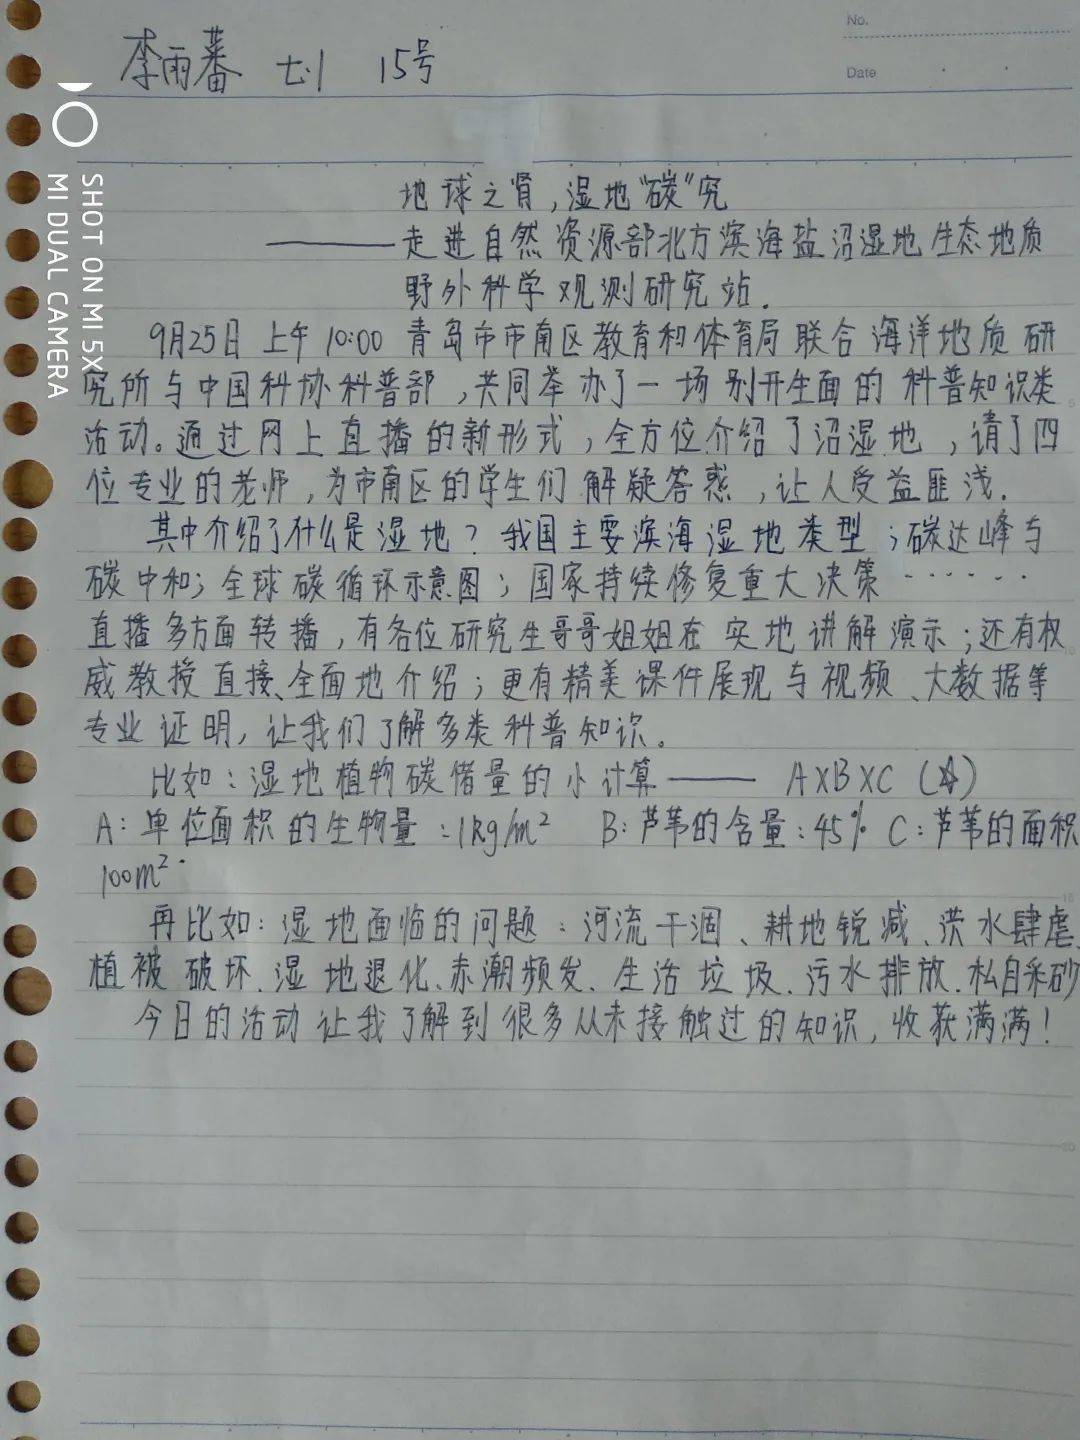 No.
Date
李雨蕃 七.1 15号
SHOT ON MI 5X
MI DUAL CAMERA
地球之肾，湿地“碳”究
——走进自然资源部北方滨海盐沼湿地生态地质
野外科学观测研究站.
9月25日上午10:00 青岛市市南区教育和体育局联合海洋地质研
究所与中国科协科普部，共同举办了一场别开生面的科普知识类
活动。通过网上直播的新形式，全方位介绍了沼湿地，请了四
位专业的老师，为市南区的学生们解疑答惑，让人受益匪浅.
其中介绍了什么是湿地？我国主要滨海湿地类型；碳达峰与
碳中和；全球碳循环示意图；国家持续修复重大决策······
直播多方面转播，有各位研究生哥哥姐姐在实地讲解演示；还有权
威教授直接、全面地介绍；更有精美课件展现与视频、大数据等
专业证明，让我们了解多类科普知识。
比如：湿地植物碳储量的小计算—— A×B×C（☆）
A：单位面积的生物量：1kg/m² B：芦苇的含量：45% C：芦苇的面积
100m².
再比如：湿地面临的问题：河流干涸、耕地锐减、洪水肆虐、
植被破坏、湿地退化、赤潮频发、生活垃圾、污水排放、私自采砂
今日的活动让我了解到很多从未接触过的知识，收获满满！
5
10
15
20